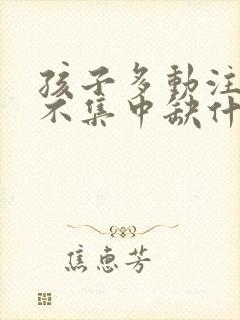 孩子多動注
不集中缺什
焦惠芳